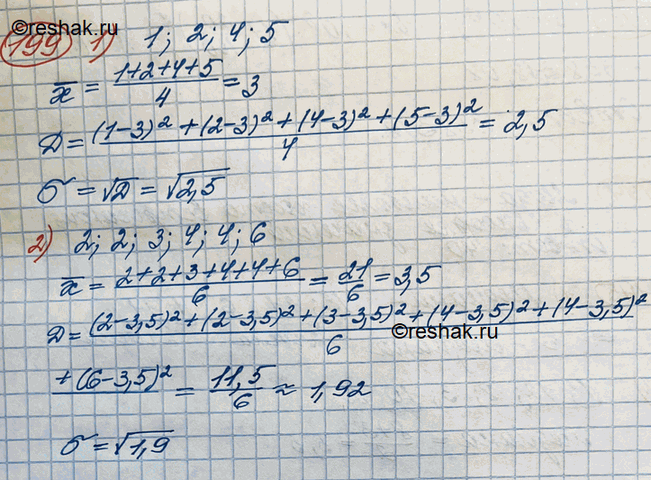 ©reshak.ru
199 1) 1; 2; 4; 5
x̄ = (1+2+4+5)/4 = 3
D = ((1-3)² + (2-3)² + (4-3)² + (5-3)²)/4 = 2,5
σ = √D = √2,5
2) 2; 2; 3; 4; 4; 6
x̄ = (2+2+3+4+4+6)/6 = 21/6 = 3,5
D = ((2-3,5)² + (2-3,5)² + (3-3,5)² + (4-3,5)² + (4-3,5)²)/6
©reshak.ru
+(6-3,5)² = 11,5/6 ≈ 1,92
σ = √1,9